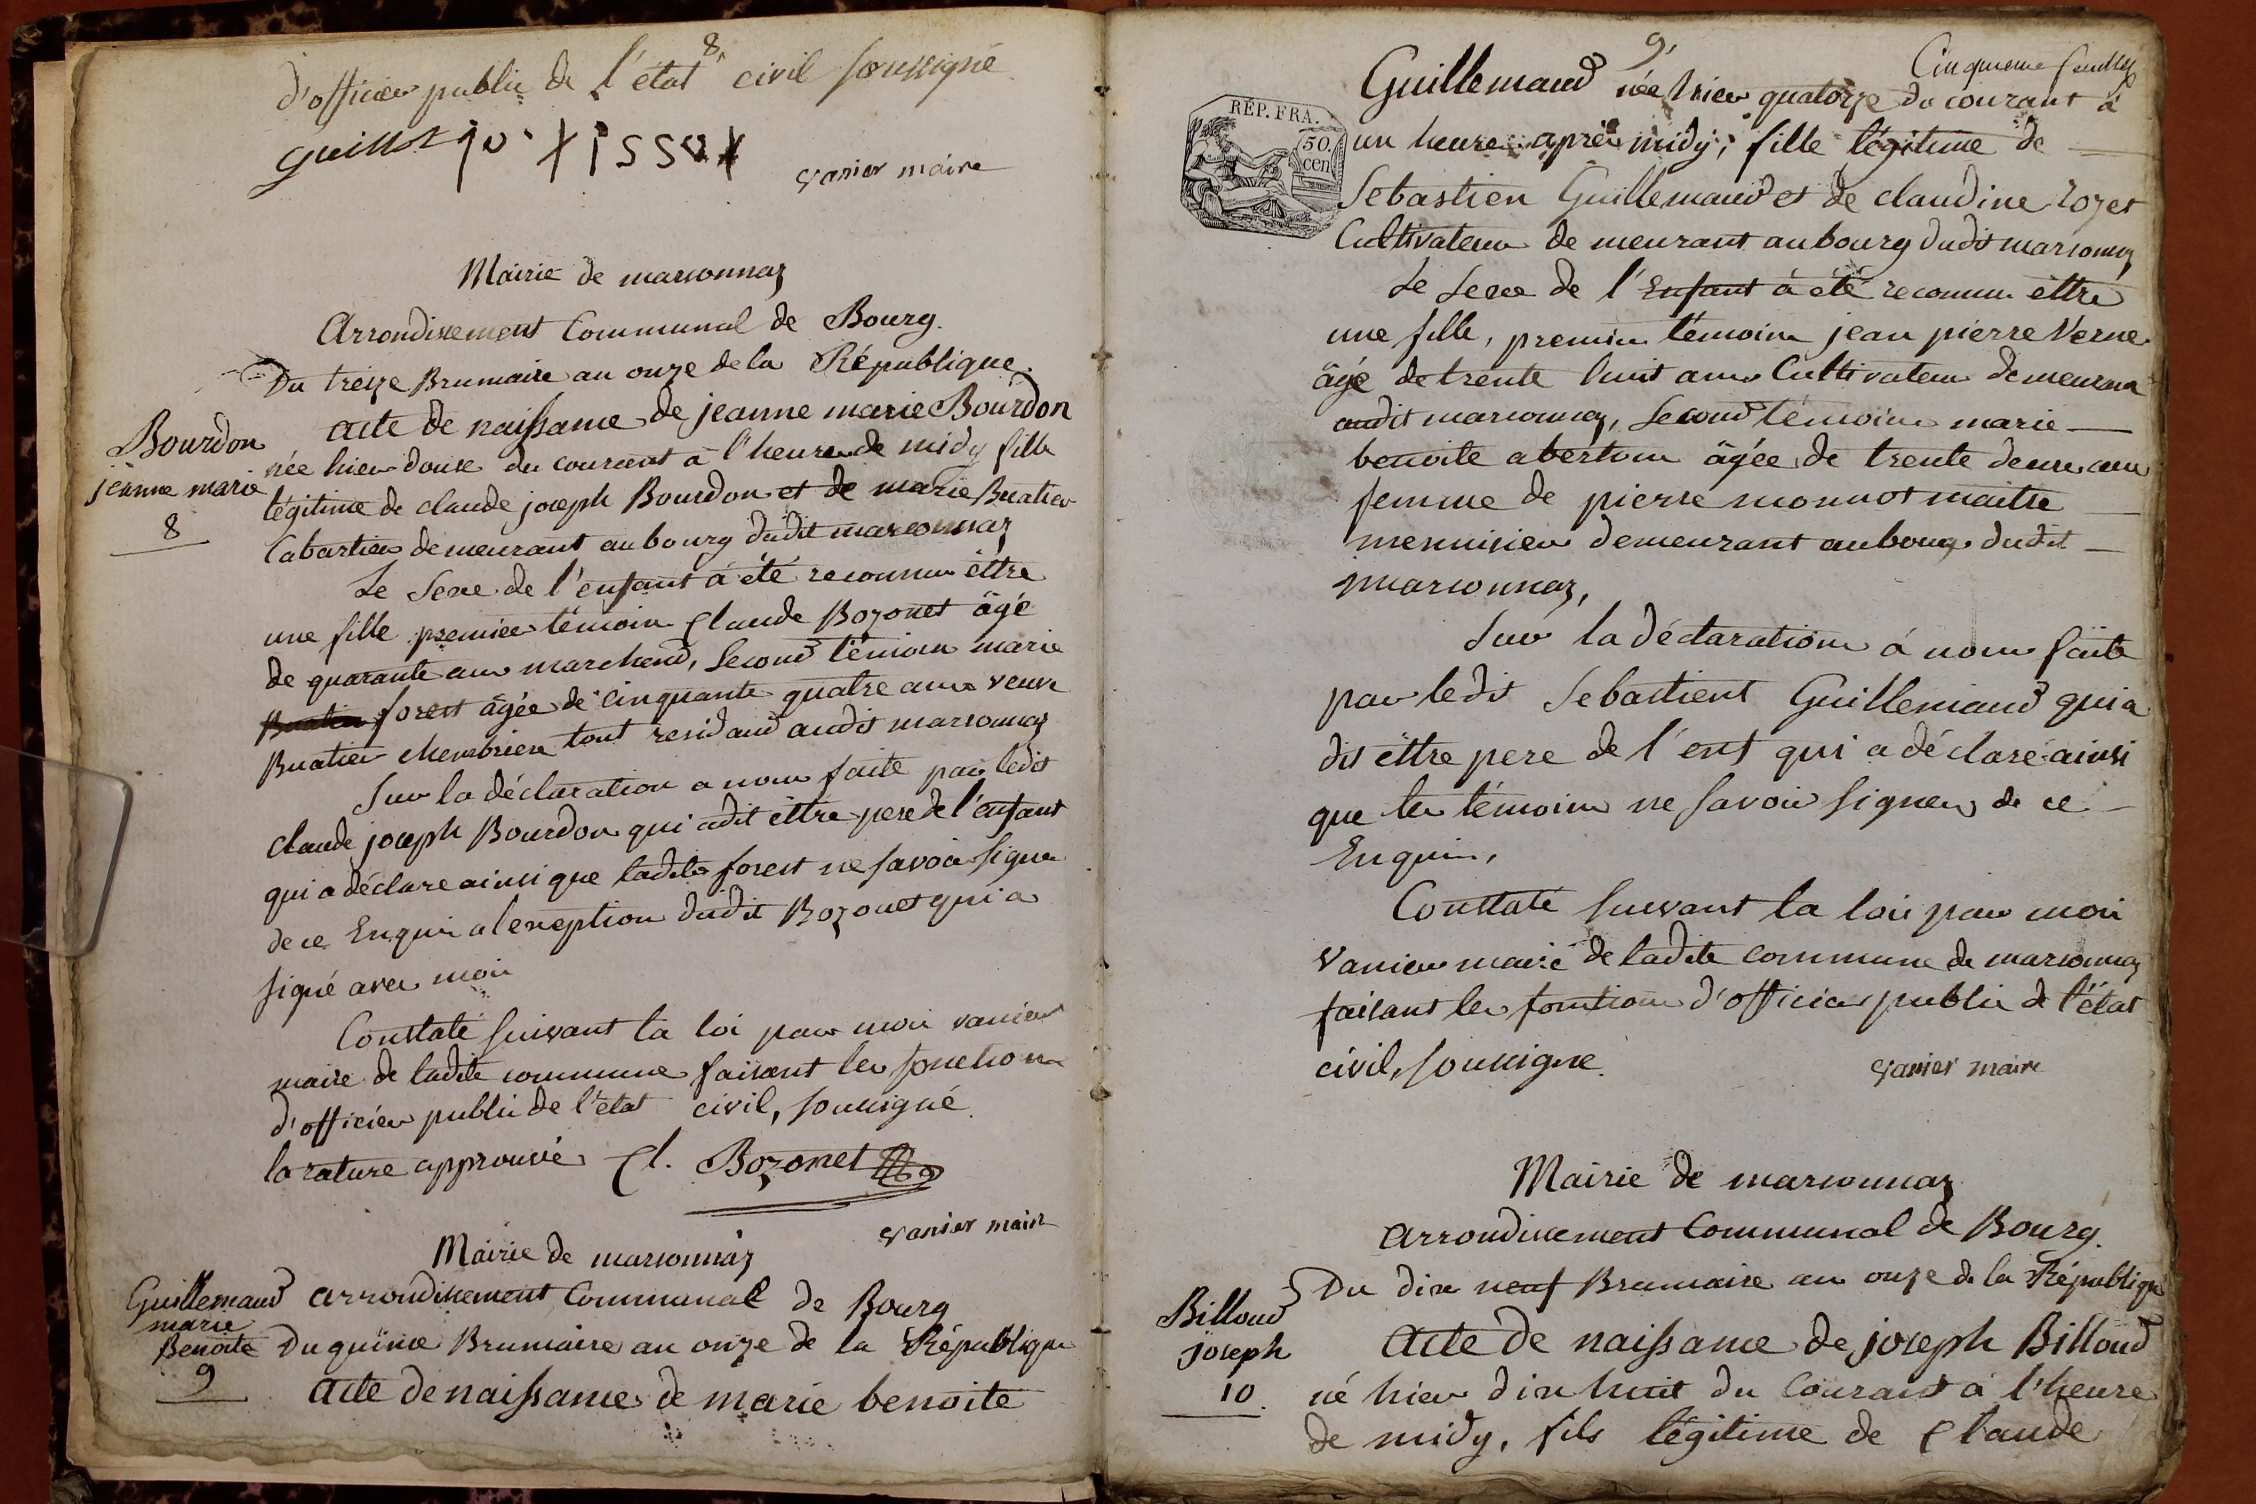 8
d'officier public de l'état civil soussigné
Guillot
vanier maire
Mairie de marsonnaz
Arrondissement Communal de Bourg.
Du treize Brumaire an onze de la République.
Bourdon
jeanne marie
8
acte de naissance de jeanne marie Bourdon
née hier douse du courant à l'heure de midy fille
légitime de claude joseph Bourdon et de marie Buatier
Cabartier demeurant au bourg dudit marsonnaz
Le sexe de l'enfant à été reconnu êttre
une fille premier témoin Claude Bozonet âgé
de quarante ans marchand, second témoin marie
Buatier forest âgée de cinquante quatre ans veuve
Buatier tout residand audit marsonnaz
Sur la déclaration a nous faite par ledit
claude joseph Bourdon qui adit êttre pere de l'enfant
qui a déclare ainsi que ladite forest ne savoir signer
de ce Enquis a lexception dudit Bozonet qui a
signé avec moi
Constaté suivant la loi par moi vanier
maire de ladite commune faisant les fonctions
d'officier public de l'état civil, soussigné
la rature approuvé Cl. Bozonet
vanier maire
Mairie de marsonnaz
Guillemaud
marie
Benoite
9
arrondissement Communal de Bourg
Du quinze Brumaire an onze de la République
acte de naissance de marie benoite
9
Cinquieme feuillet
RÉP. FRA.
50.
cen
Guillemaud née hier quatorze du courant à
un heure après midy, fille légitime de
Sebastien Guillemaud et de claudine rozet
Cultivateur de meurant au bourg dudit marsonnaz
Le sexe de l'Enfant à été reconnu êttre
une fille, premier témoin jean pierre Verne
âgé de trente huit ans Cultivateur demeurant
audit marsonnaz, Second témoin marie
benoite abertom âgée de trente deux ans
femme de pierre monnot maitre
mennisier demeurant au bourg dudit
marsonnaz,
Sur la déclaration à nous faite
par ledit Sebastient Guillemaud qui a
dit êttre pere de l'ent qui a déclaré ainsi
que les témoins ne savoir signer de ce
Enquis,
Constaté suivant la loi par moi
vanier maire de ladite commune de marsonnaz
faisant les fontions d'officier public de l'état
civil, soussigné.
vanier maire
Mairie de marsonnaz
arrondissement Communal de Bourg.
Du dix neuf Brumaire an onze de la République
Billoud
joseph
10.
acte de naissance de joseph Billoud
né hier dix huit du Courant à l'heure
de midy, fils légitime de Claude